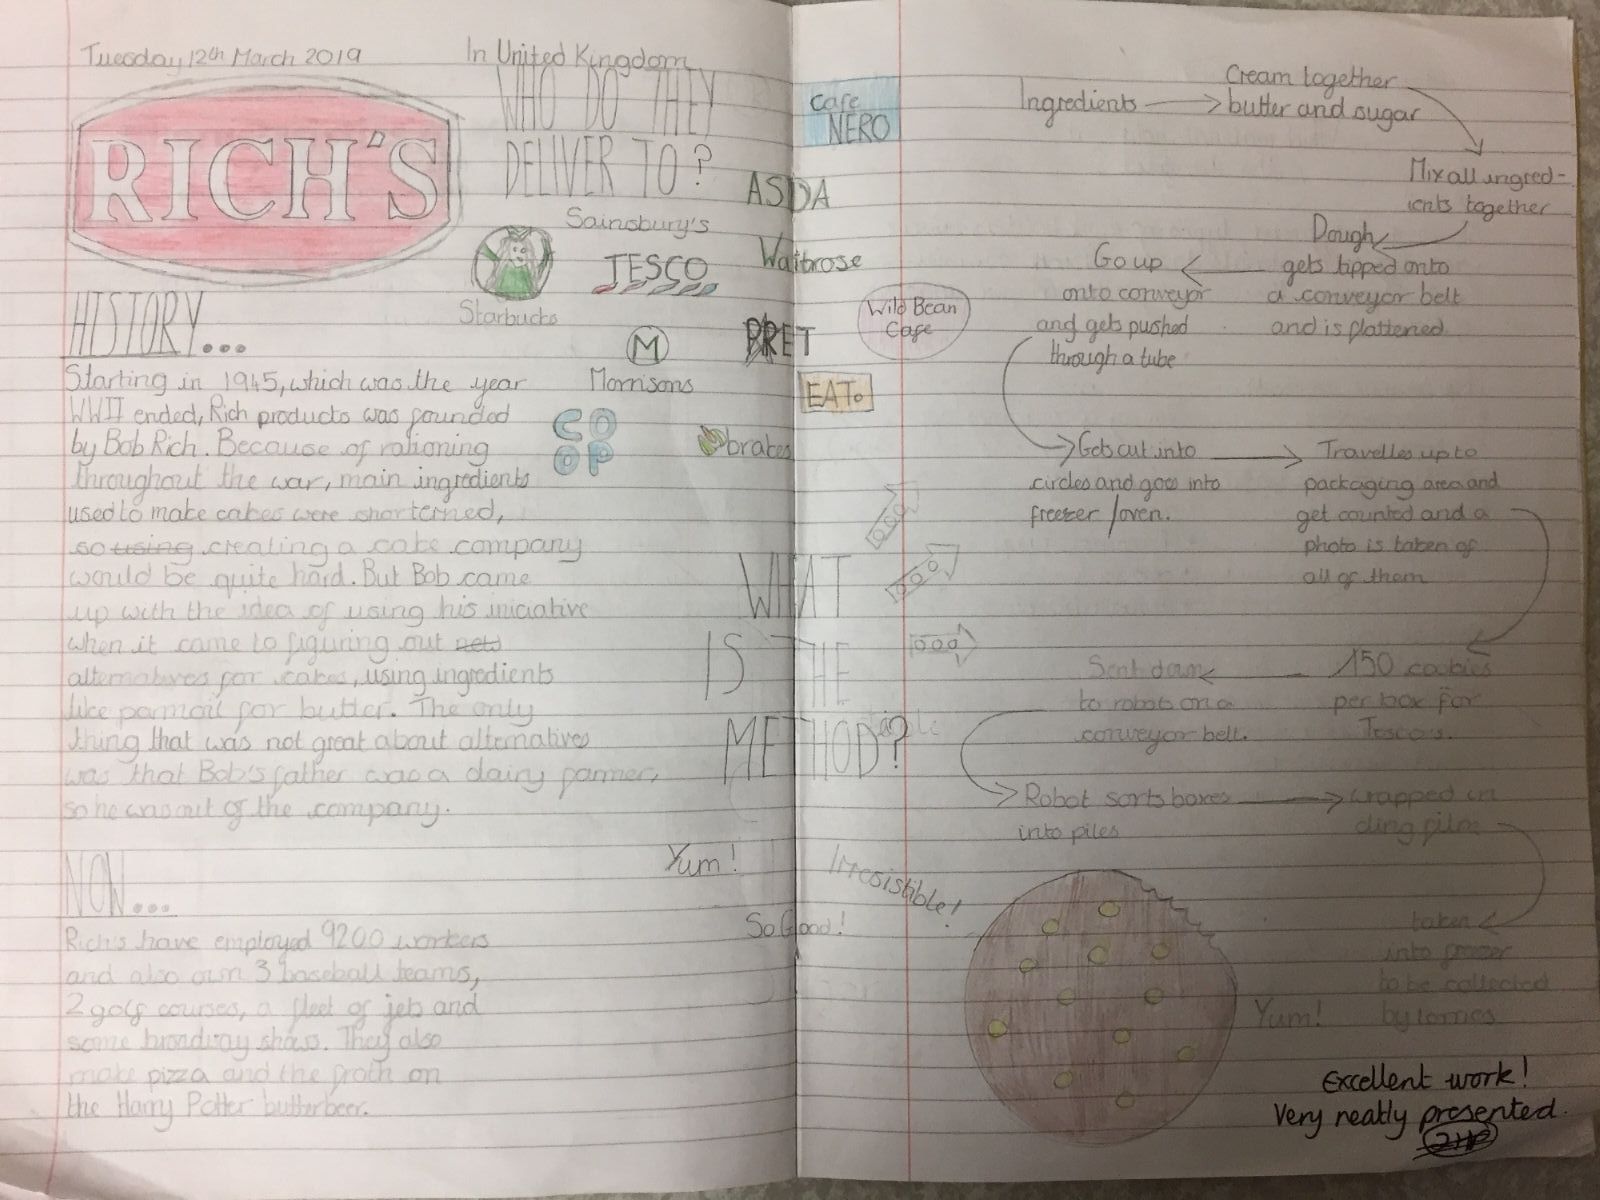 Tuesday 12th March 2019
RICH'S
In United Kingdom
WHO DO THEY
DELIVER TO?
Cafe
NERO
ASDA
Sainsbury's
TESCO
Waitrose
Starbucks
Wild Bean
Cafe
PRET
M
Morrisons
EAT.
CO
OP
brakes
HISTORY...
Starting in 1945, which was the year
WWII ended, Rich products was founded
by Bob Rich. Because of rationing
throughout the war, main ingredients
used to make cakes were shorterned,
so using creating a cake company
would be quite hard. But Bob came
up with the idea of using his iniciative
when it came to figuring out
alternatives for cakes, using ingredients
like parmoil for butter. The only
thing that was not great about alternatives
was that Bob's father was a dairy farmer,
so he was out of the company.
NOW...
Rich's have employed 9200 workers
and also own 3 baseball teams,
2 golf courses, a fleet of jets and
some broadway shows. They also
make pizza and the froth on
the Harry Potter butterbeer.
WHAT
IS THE
METHOD?
Ingredients
Cream together
butter and sugar
Mix all ingred-
ients together
Dough
gets tipped onto
a conveyor belt
and is flattened
Go up
onto conveyor
and gets pushed
through a tube
Gets cut into
circles and goes into
freezer/oven.
Travelles up to
packaging area and
get counted and a
photo is taken of
all of them
150 cookies
per box for
Tesco's.
Sent down
to robots on a
conveyor belt.
Robot sorts boxes
into piles
wrapped in
cling film
taken
into freezer
to be collected
by lorries
Yum!
Irresistible!
So Good!
Yum!
Excellent work!
Very neatly presented.